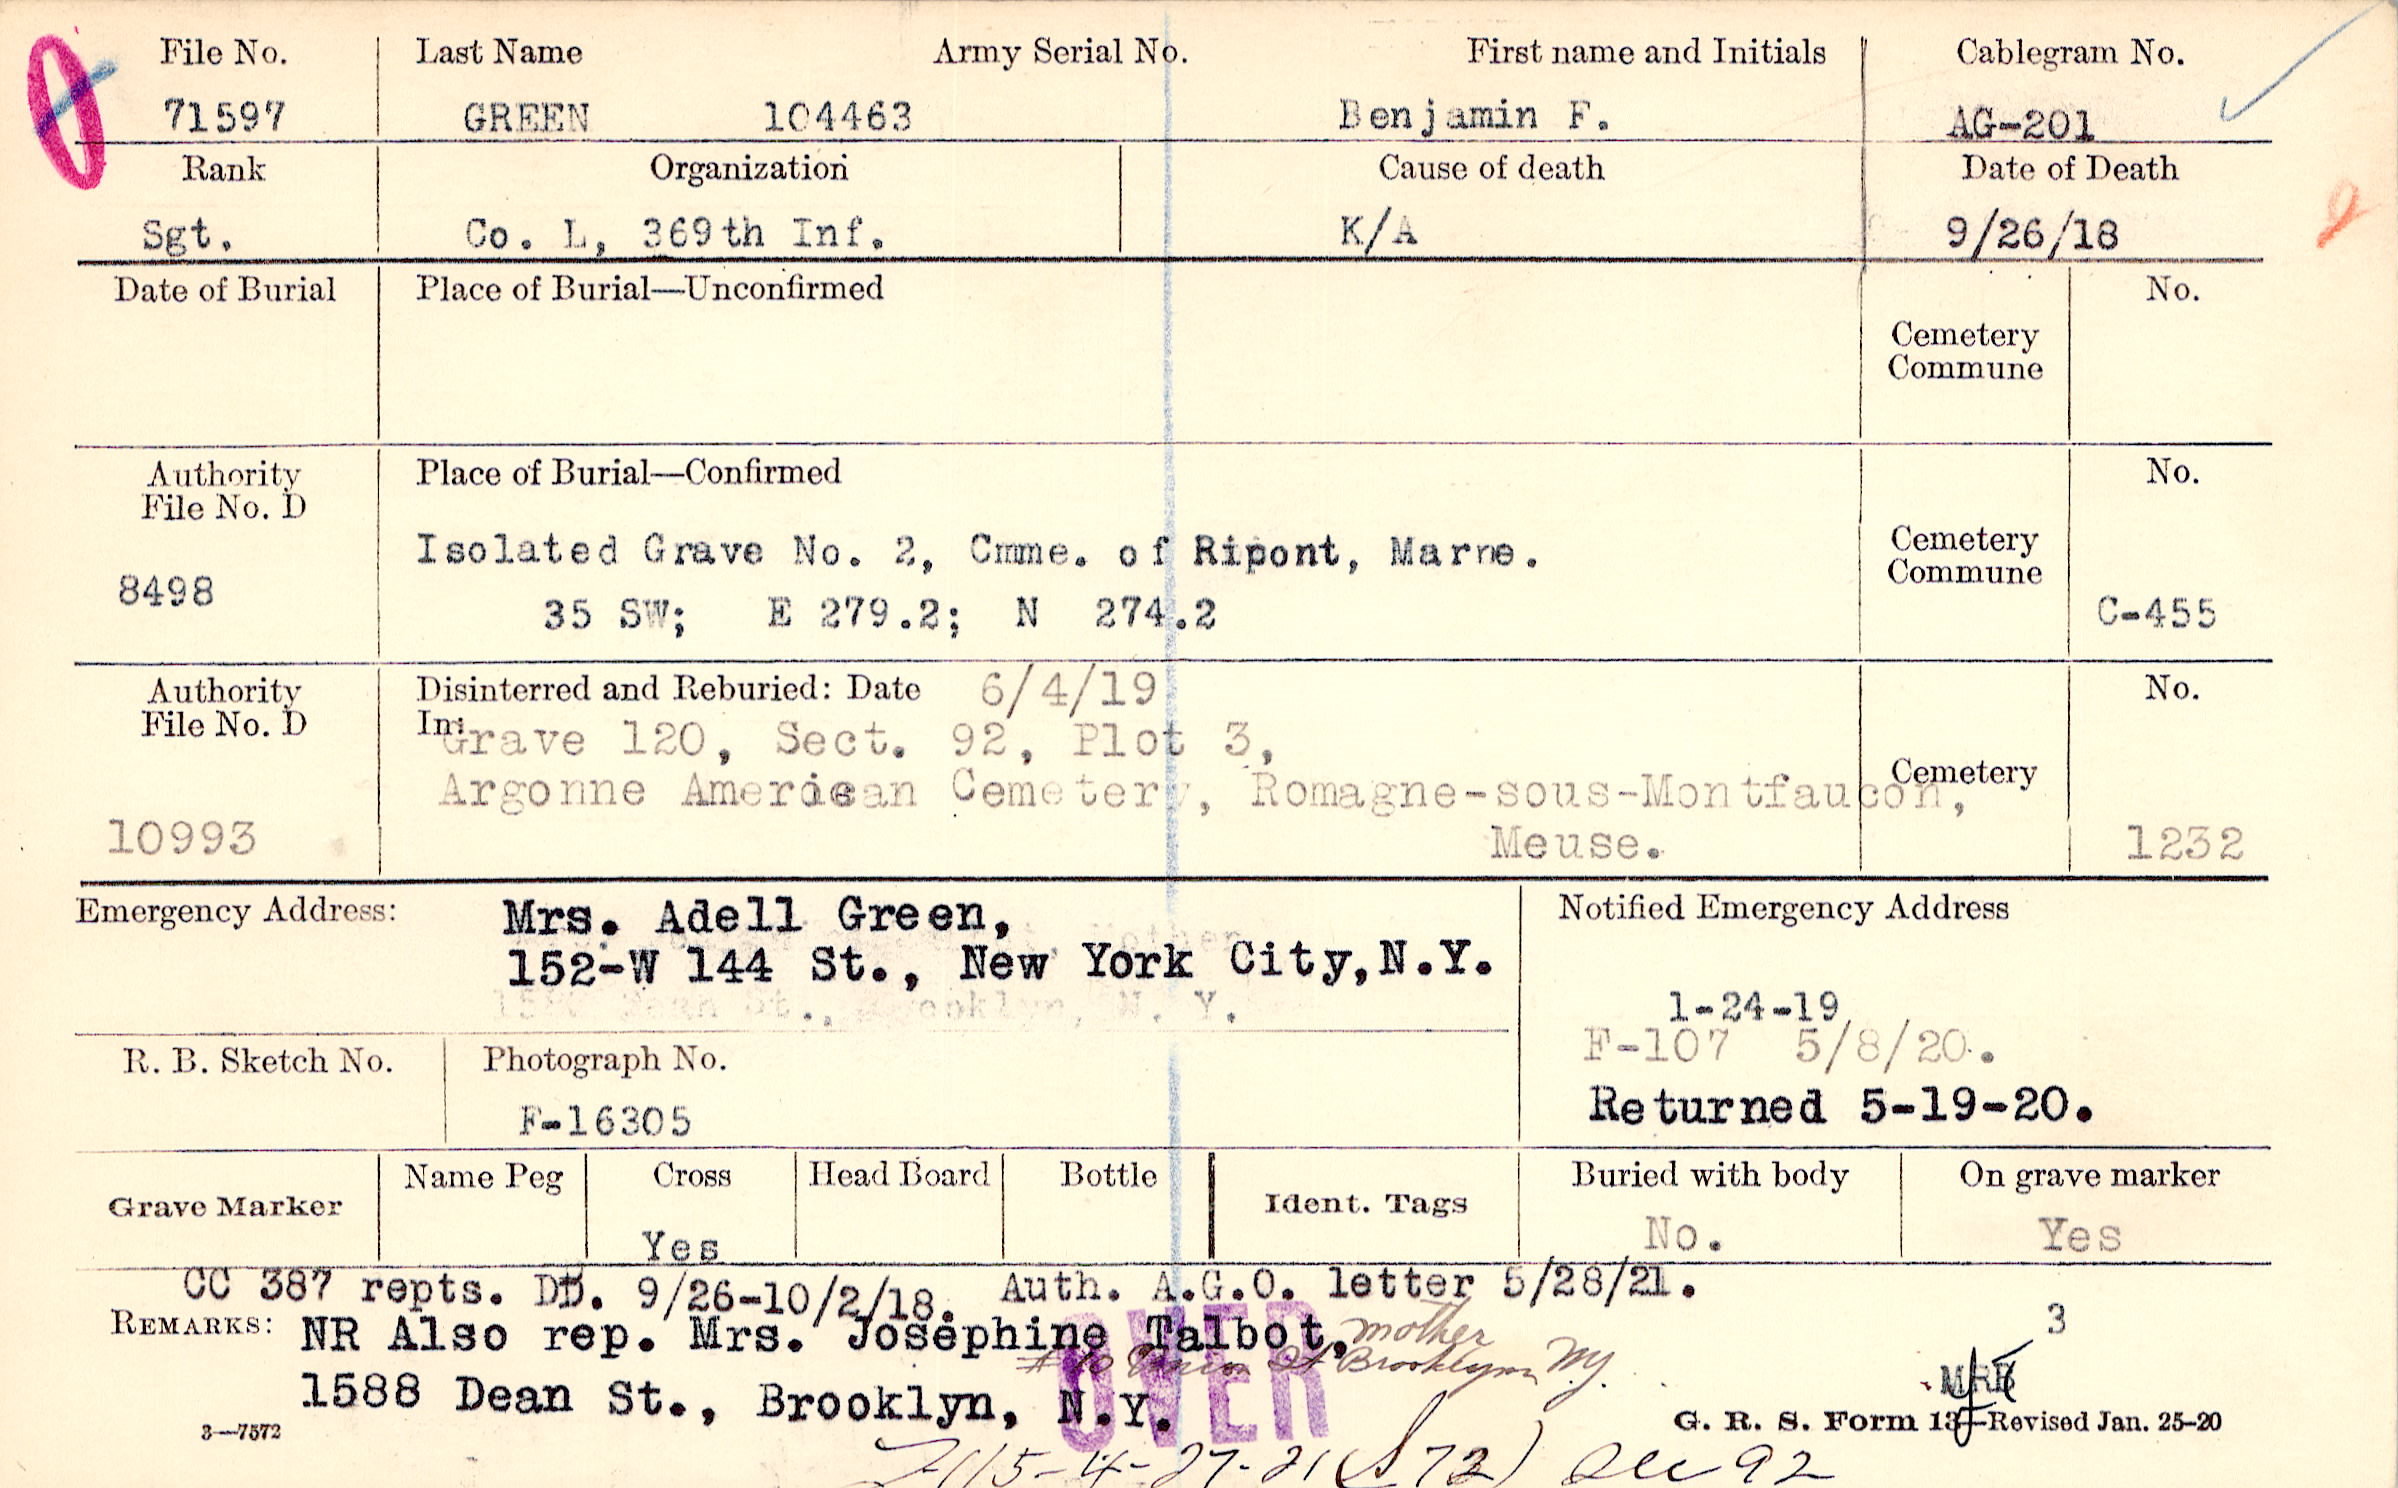 File No. Last Name Army Serial No. First name and Initials Cablegram No.
71597 GREEN 104463 Benjamin F. AG-201
Rank Organization Cause of death Date of Death
Sgt. Co. L, 369th Inf. K/A 9/26/18
2
Date of Burial Place of Burial—Unconfirmed No.
Cemetery
Commune
Authority Place of Burial—Confirmed No.
File No. D
Isolated Grave No. 2, Cmme. of Ripont, Marne. Cemetery
Commune
8498 35 SW; E 279.2; N 274.2 C-455
Authority Disinterred and Reburied: Date 6/4/19 No.
File No. D In: Grave 120, Sect. 92, Plot 3,
Cemetery
Argonne American Cemetery, Romagne-sous-Montfaucon,
10993 Meuse. 1232
Emergency Address: Mrs. Adell Green, Notified Emergency Address
Mother
152-W 144 St., New York City, N.Y.
St., Brooklyn, N. Y. 1-24-19
F-107 5/8/20.
R. B. Sketch No. Photograph No.
F-16305 Returned 5-19-20.
Grave Marker Name Peg Cross Head Board Bottle Ident. Tags Buried with body On grave marker
Yes No. Yes
CC 387 repts. DD. 9/26-10/2/18. Auth. A.G.O. letter 5/28/21.
REMARKS: NR Also rep. Mrs. Josephine Talbot, mother 3
St Brooklyn N.Y.
OVER
1588 Dean St., Brooklyn, N.Y.
3—7572 G. R. S. Form 13—Revised Jan. 25-20
115-4-27-21 (S 72) Sec 92